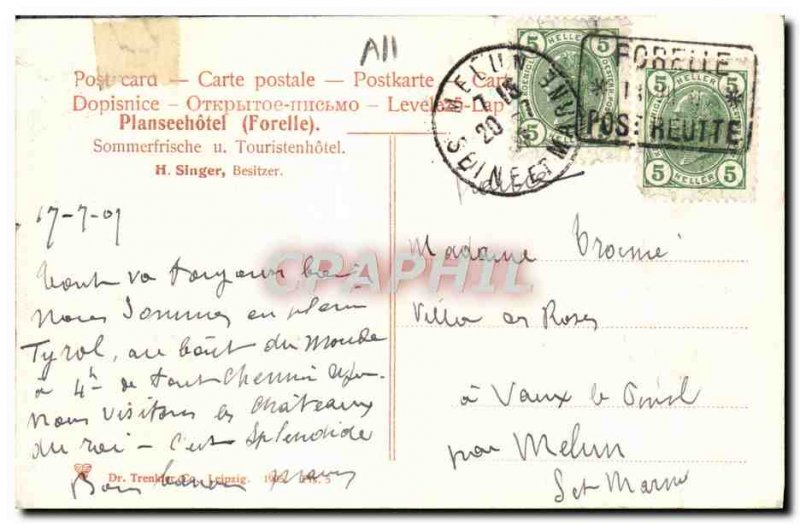 All
Post card — Carte postale — Postkarte — Cart
Dopisnice — Открытое-письмо — Levelező-Lap
Planseehôtel (Forelle).
Sommerfrische u. Touristenhôtel.
H. Singer, Besitzer.
5 HELLER 5
MELUN
20
SEINE ET MARNE
FORELLE
POST REUTTE
5 HELLER 5
17-7-09
Tout va toujours bien
Nous sommes en plein
Tyrol, au bout du monde
à 4h de tout chemin
Nous visitons les châteaux
du roi — c'est splendide
Bons
Madame
Villa des Roses
à Vaux le Pénil
par Melun
Set Marne
CPAPHIL
Dr. Trenkler Co., Leipzig. 5